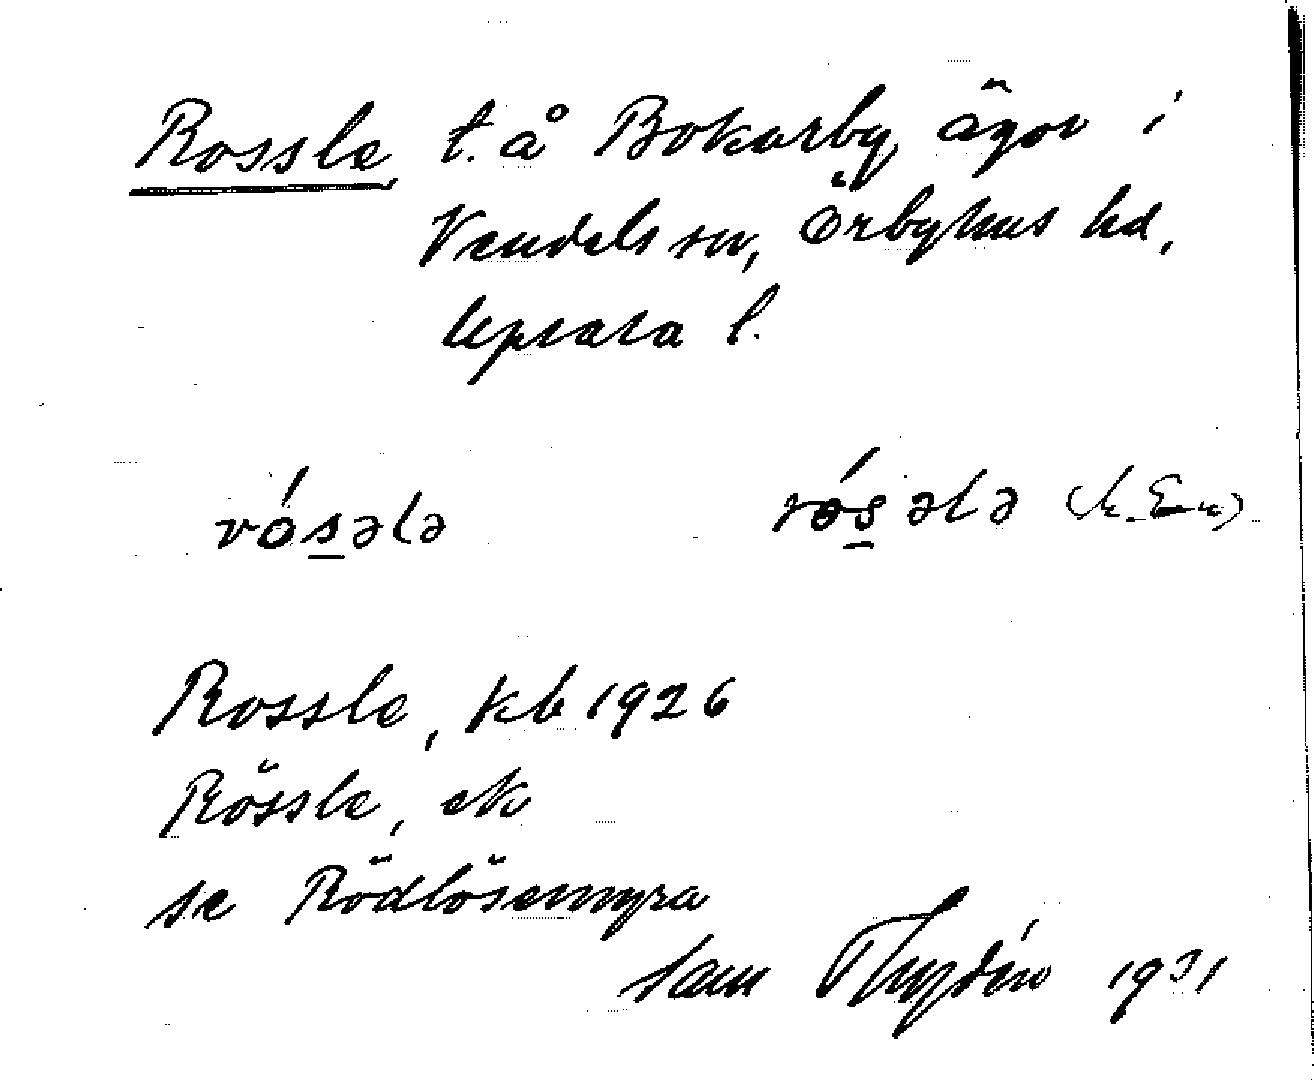 Rossle, t. å Bokarby ägor i
Vendels sn, Örbyhus hd,
Uppsala l.
rós̲ələ rós̲ələ
Rossle, kb 1926
Rössle, ek
se Rödlösemyra
Sam Thydén 1931